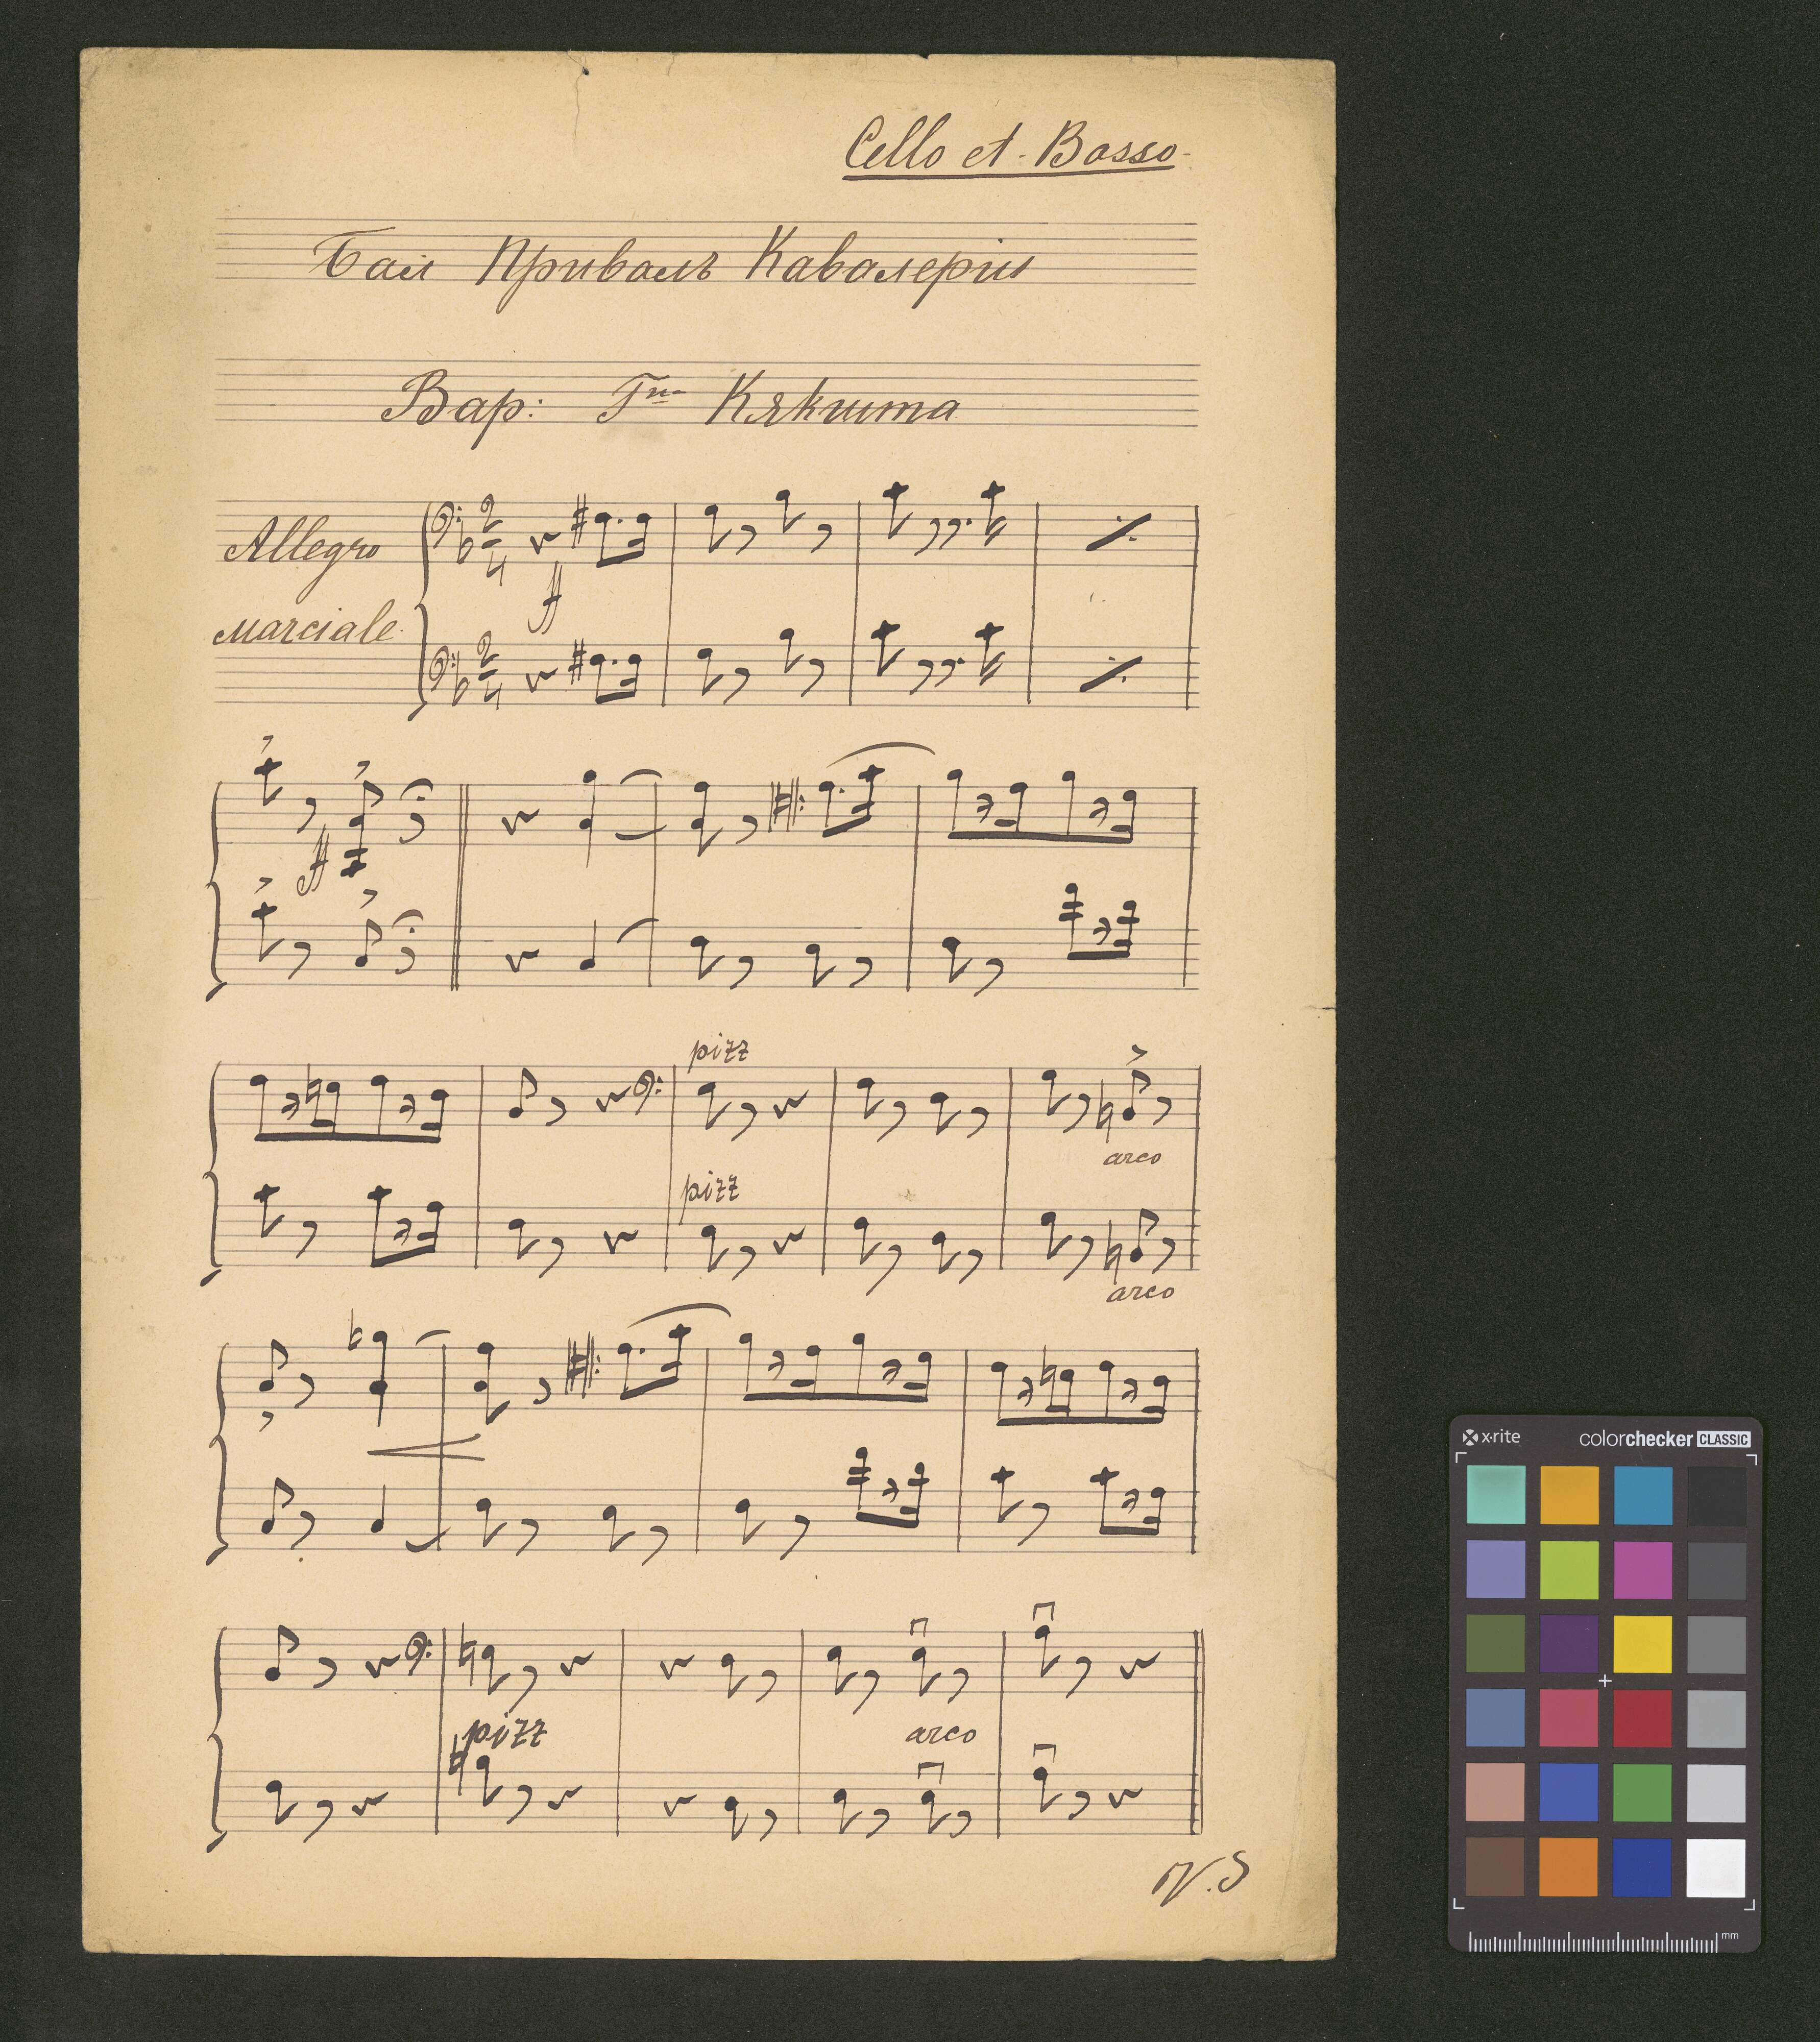 Cello et Basso
Бал Привалъ Кавалеріи
Вар: Гна Кякшта
Allegro
marciale
ff
ff
pizz
pizz
arco
arco
pizz
arco
V.S
x·rite
colorchecker CLASSIC
mm